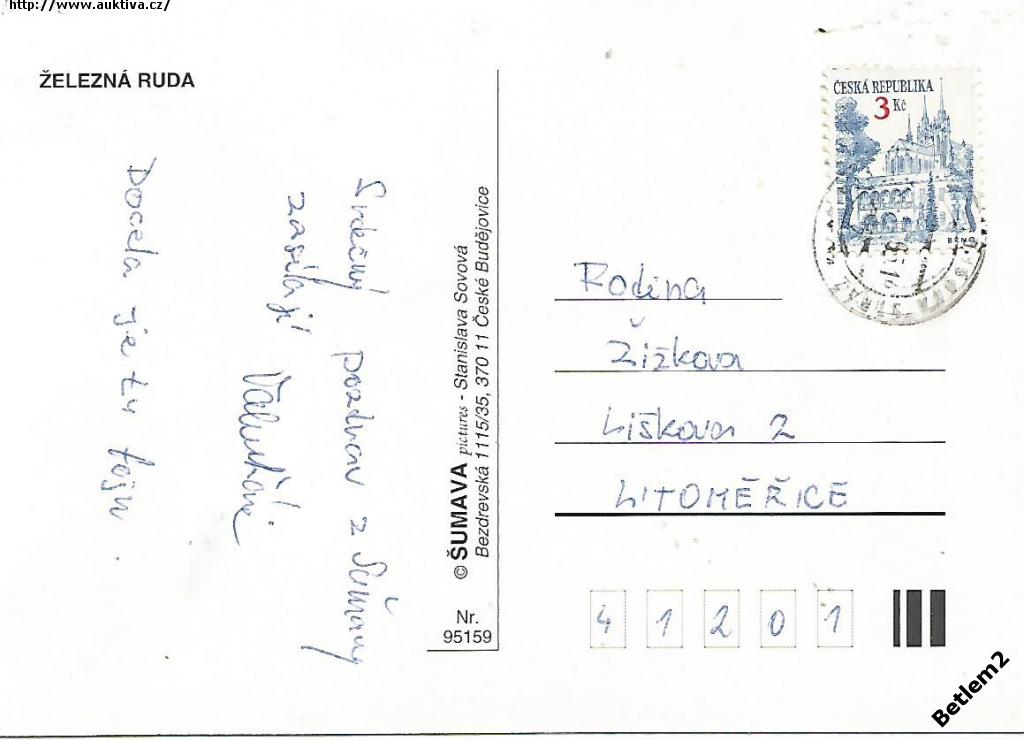 http://www.auktiva.cz/
ŽELEZNÁ RUDA
Srdečný pozdrav z Šumavy
zasílají
Docela je tu fajn.
© ŠUMAVA pictures - Stanislava Sovová
Bezdrevská 1115/35, 370 11 České Budějovice
Nr.
95159
ČESKÁ REPUBLIKA
3 Kč
BRNO
Rodina
Žižkova
Liškova 2
LITOMĚŘICE
41201
Betlem2